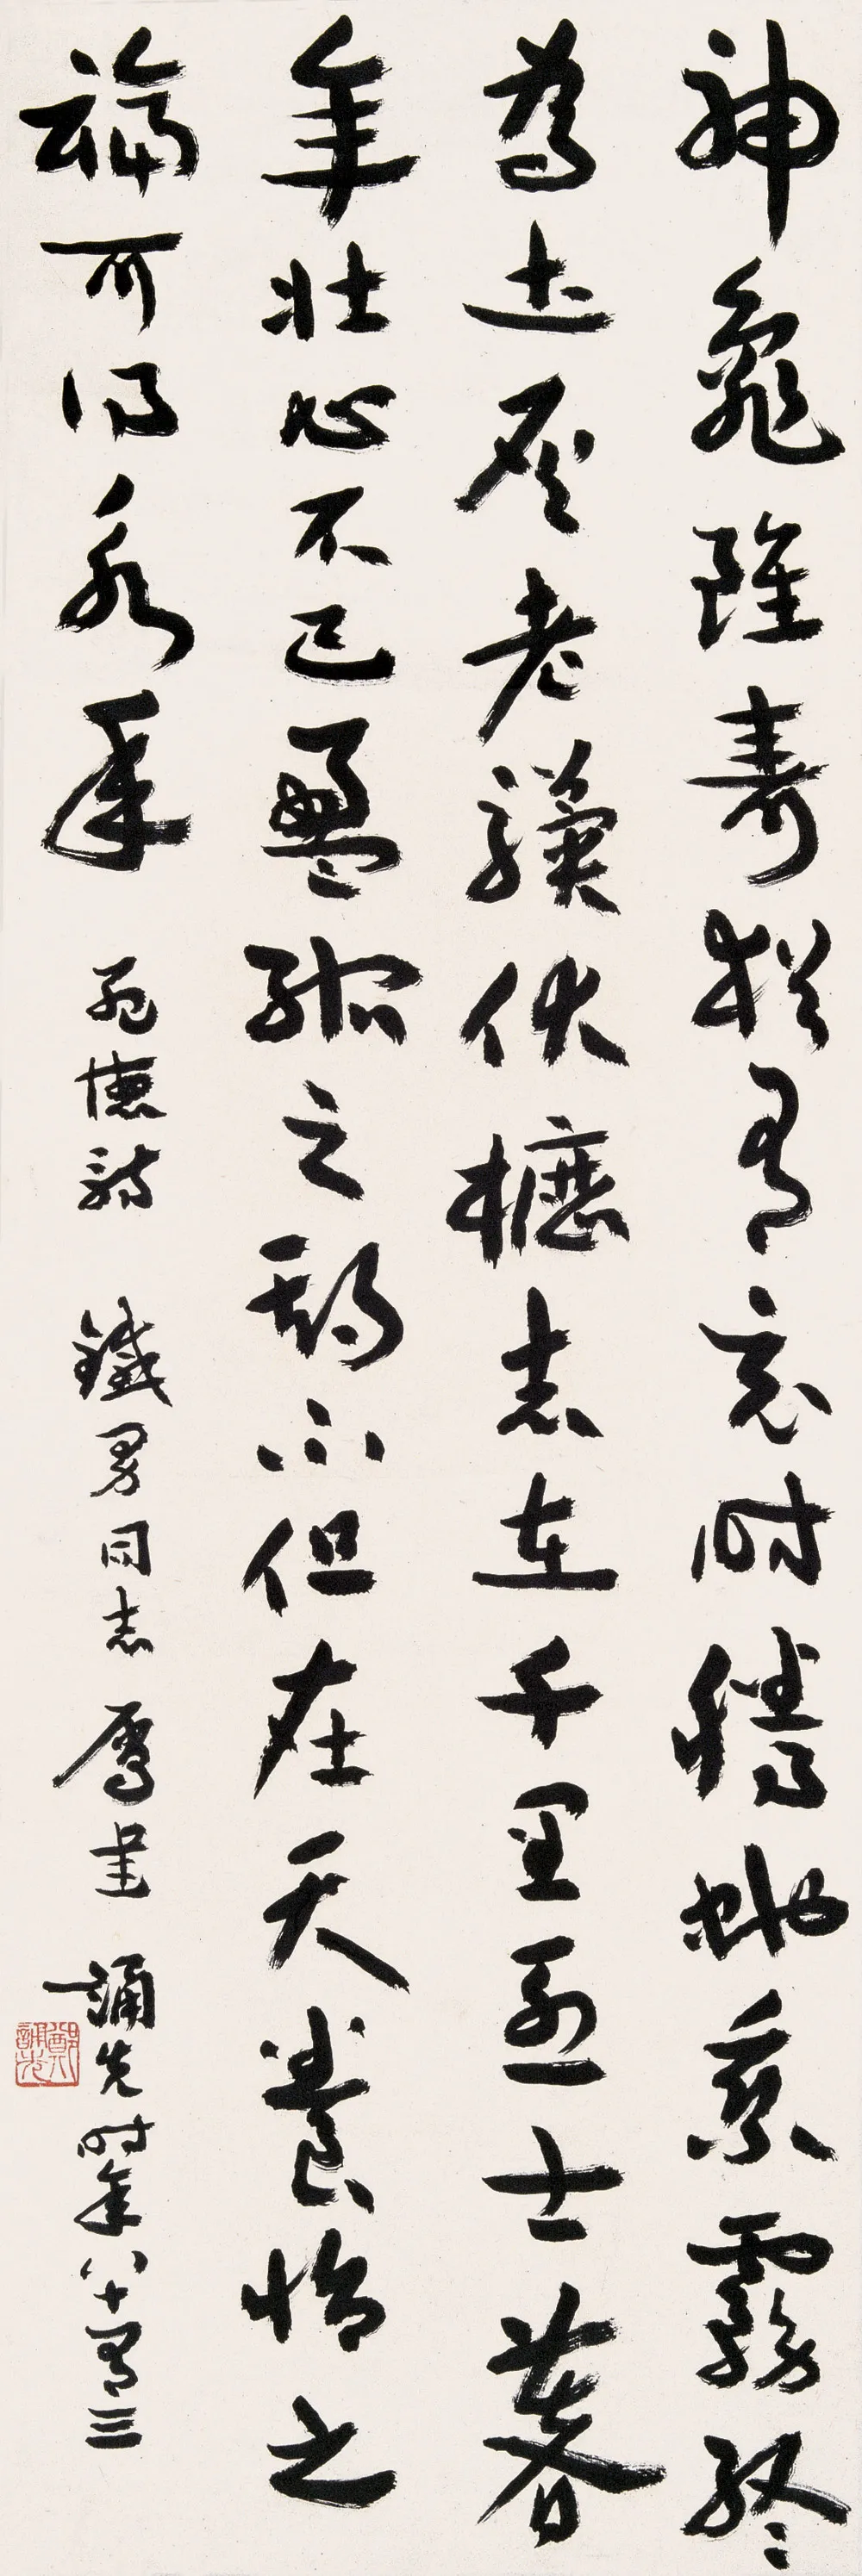 神龜雖壽猶有竟时騰蛇乘霧終
為土灰老驥伏櫪志在千里烈士暮
年壯心不已盈縮之期不但在天養怡之
福可得永年 孟德詩 鐵男同志属書 誦先时年八十有三
鄭誦先